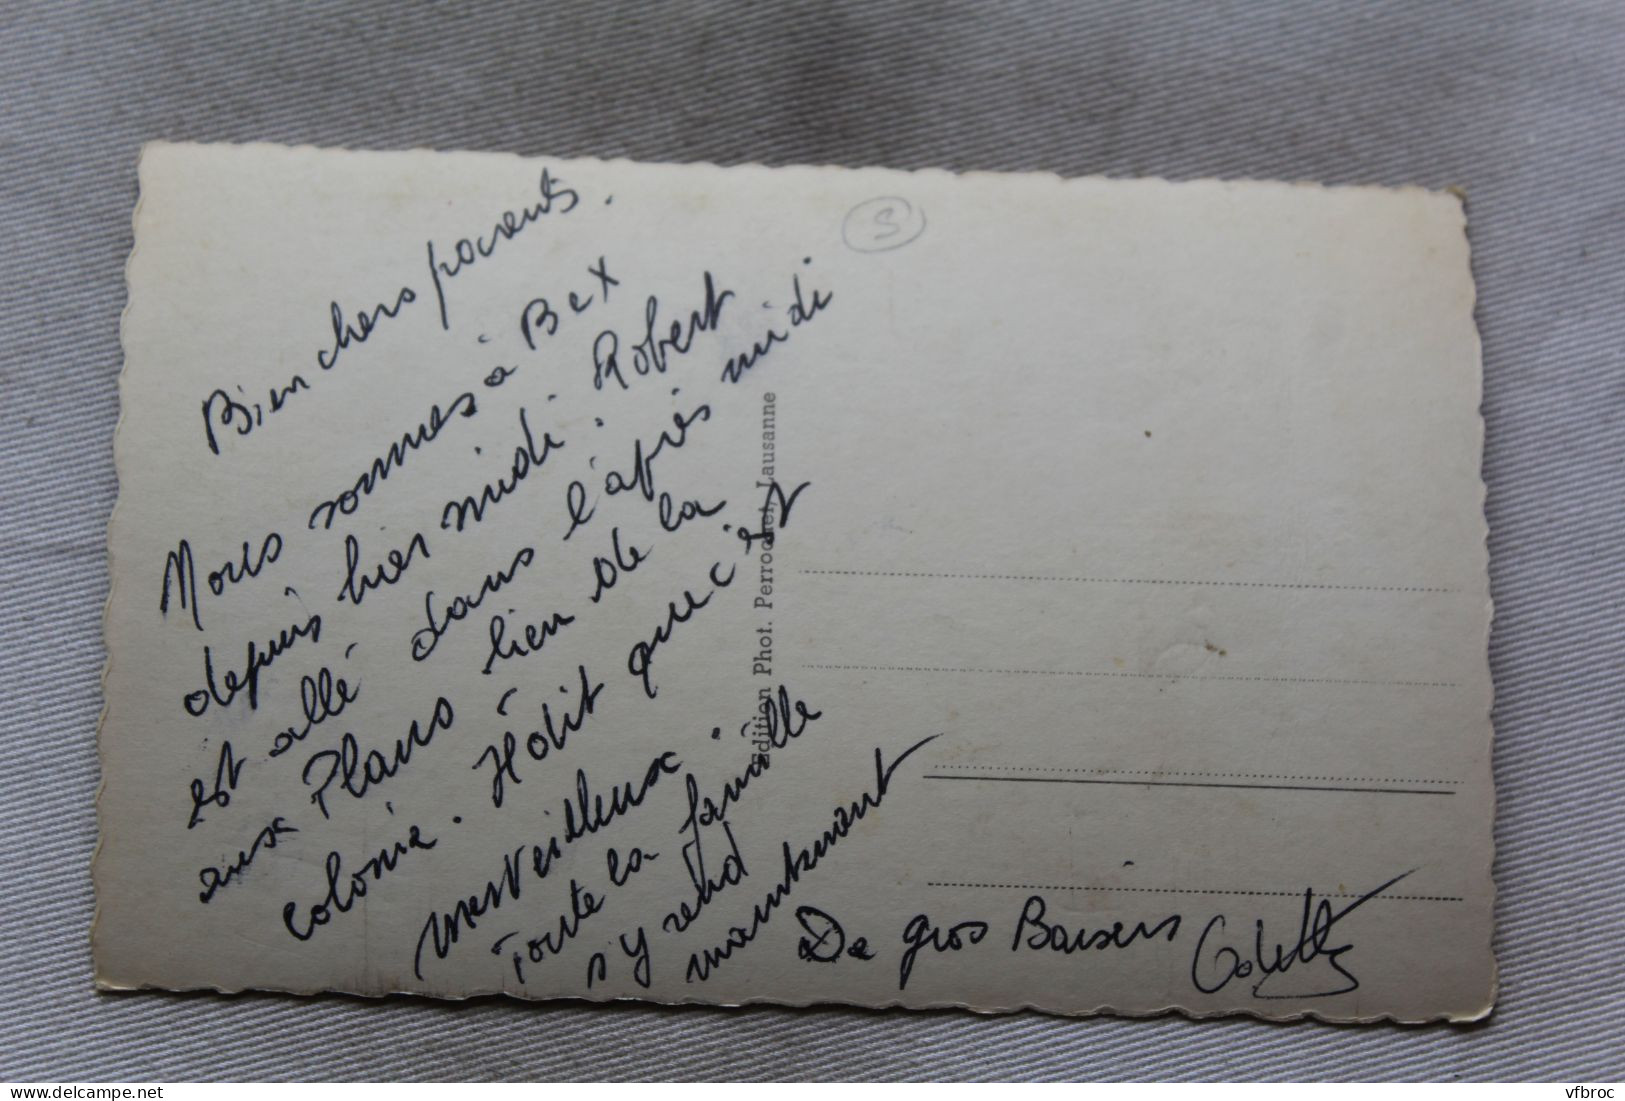 Bien chers parents.
Nous sommes à Bex
depuis hier midi. Robert
est allé dans l'après midi
aux Plans lieu de la
colonie. Il dit que c'est
merveilleux.
Toute la famille
s'y rend
maintenant
De gros Baisers
Odette
S
Edition Phot. Perrochet, Lausanne
www.delcampe.net
vfbroc